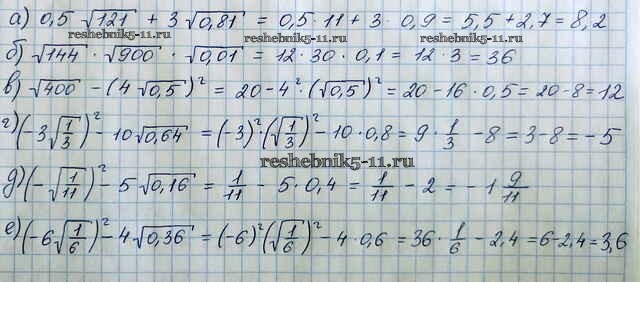 а) 0,5 √121 + 3 √0,81 = 0,5·11 + 3 · 0,9 = 5,5 + 2,7 = 8,2
reshebnik5-11.ru reshebnik5-11.ru
б) √144 · √900 · √0,01 = 12 · 30 · 0,1 = 12 · 3 = 36
в) √400 - (4√0,5)² = 20 - 4² · (√0,5)² = 20 - 16 · 0,5 = 20 - 8 = 12
г) (-3√1/3)² - 10√0,64 = (-3)² · (√1/3)² - 10 · 0,8 = 9 · 1/3 - 8 = 3 - 8 = - 5
reshebnik5-11.ru
д) (-√1/11)² - 5√0,16 = 1/11 - 5 · 0,4 = 1/11 - 2 = - 1 9/11
reshebnik5-11.ru reshebnik5-11.ru
е) (-6√1/6)² - 4√0,36 = (-6)² (√1/6)² - 4 · 0,6 = 36 · 1/6 - 2,4 = 6 - 2,4 = 3,6